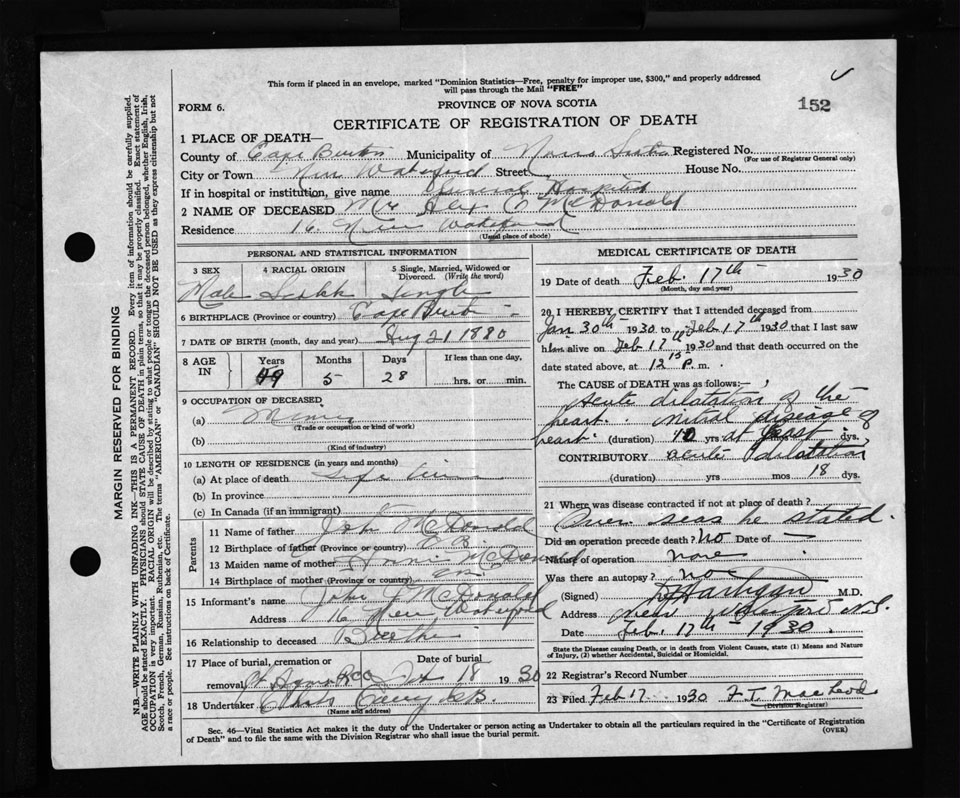 This form if placed in an envelope, marked "Dominion Statistics—Free, penalty for improper use, $300," and properly addressed
will pass through the Mail "FREE"
FORM 6.
PROVINCE OF NOVA SCOTIA
152
CERTIFICATE OF REGISTRATION OF DEATH
1 PLACE OF DEATH—
County of Cape Breton Municipality of Nova Scotia Registered No.
(For use of Registrar General only)
City or Town New Waterford Street House No.
If in hospital or institution, give name General Hospital
2 NAME OF DECEASED Mr Alex C McDonald
Residence 16 New Waterford
(Usual place of abode)
PERSONAL AND STATISTICAL INFORMATION
3 SEX 4 RACIAL ORIGIN 5 Single, Married, Widowed or Divorced. (Write the word)
Male Single
6 BIRTHPLACE (Province or country) Cape Breton
7 DATE OF BIRTH (month, day and year) Aug 21 1880
8 AGE IN Years Months Days If less than one day,
49 5 28 hrs. or min.
9 OCCUPATION OF DECEASED
(a)
(Trade or occupation or kind of work)
(b)
(Kind of industry)
10 LENGTH OF RESIDENCE (in years and months)
(a) At place of death Life
(b) In province
(c) In Canada (if an immigrant)
Parents
11 Name of father John McDonald
12 Birthplace of father (Province or country) C B
13 Maiden name of mother McDonald
14 Birthplace of mother (Province or country)
15 Informant's name John J McDonald
Address 16 New Waterford
16 Relationship to deceased Brother
17 Place of burial, cremation or Date of burial
removal 18 1930
18 Undertaker
(Name and address)
MEDICAL CERTIFICATE OF DEATH
19 Date of death Feb. 17th 1930
(Month, day and year)
20 I HEREBY CERTIFY that I attended deceased from
Jan 30th 1930 to Feb 17th 1930 that I last saw
him alive on Feb 17th 1930 and that death occurred on
date stated above, at 12 15 P. m.
The CAUSE of DEATH was as follows:—
Acute dilatation of the
heart. Mitral disease of
heart. (duration) 10 yrs at least dys.
CONTRIBUTORY acute dilatation
(duration) yrs mos 18 dys.
21 Where was disease contracted if not at place of death?
Over seas he stated.
Did an operation precede death? No Date of —
Nature of operation none
Was there an autopsy? no
(Signed)
Address New Waterford N.S.
Date Feb. 17th 1930.
State the Disease causing Death, or in death from Violent Causes, state (1) Means and
Nature of Injury, (2) whether Accidental, Suicidal or Homicidal.
22 Registrar's Record Number
23 Filed Feb 17 1930 F. T. MacLeod
(Division Registrar)
Sec. 46—Vital Statistics Act makes it the duty of the Undertaker or person acting as Undertaker to obtain all the particulars required in the "Certificate of Registration
of Death" and to file the same with the Division Registrar who shall issue the burial permit.
(OVER)
MARGIN RESERVED FOR BINDING
N.B.—WRITE PLAINLY WITH UNFADING INK—THIS IS A PERMANENT RECORD. Every item of information should be carefully supplied.
AGE should be stated EXACTLY. PHYSICIANS should STATE CAUSE OF DEATH in plain terms, so that it may be properly classified. Exact statement of
OCCUPATION is very important. RACIAL ORIGIN will be described by stating to what people or tongue the deceased person belonged, whether English, Irish,
Scotch, French, German, Russian, Ruthenian, etc. The terms "AMERICAN" or "CANADIAN" SHOULD NOT BE USED as they express citizenship but not
a race or people. See instructions on back of Certificate.